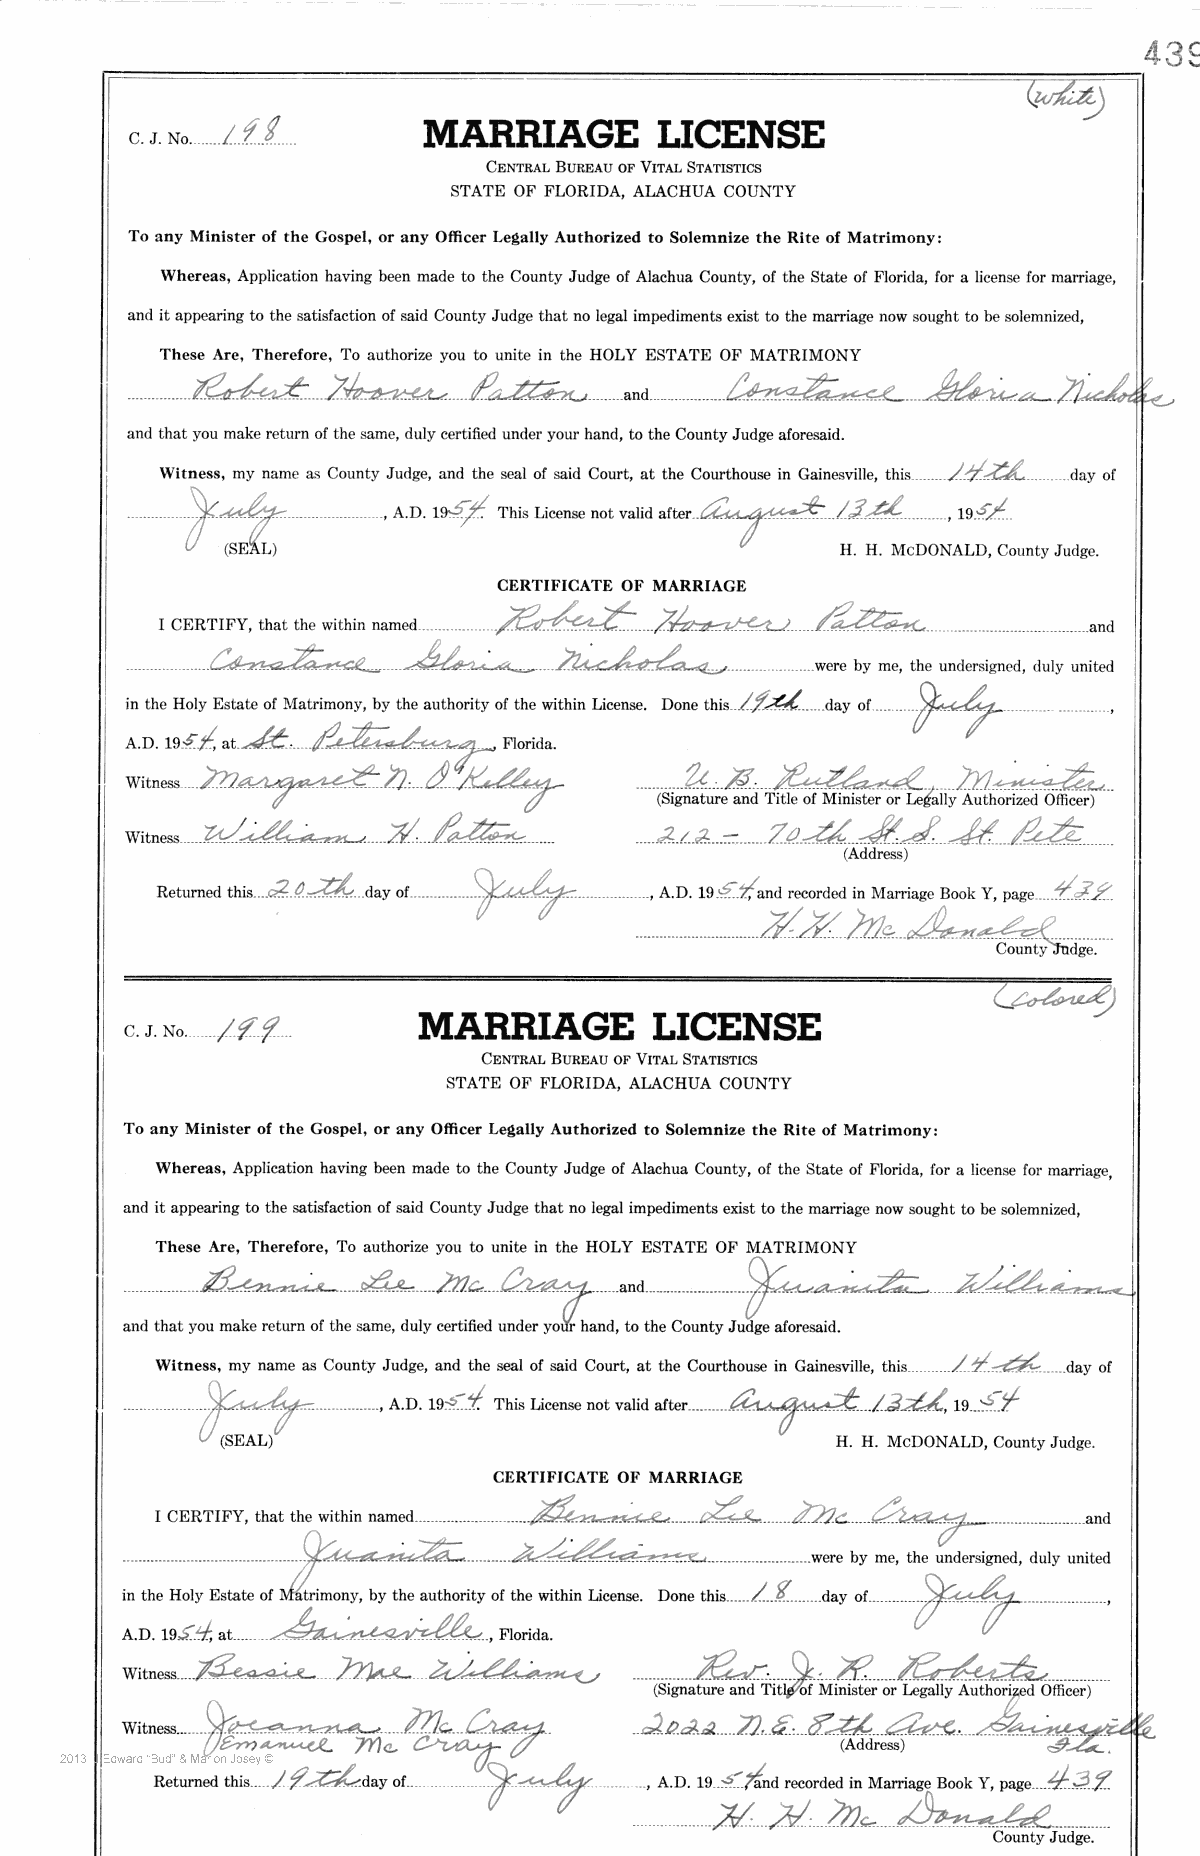 439
(white)
C. J. No. 198
MARRIAGE LICENSE
CENTRAL BUREAU OF VITAL STATISTICS
STATE OF FLORIDA, ALACHUA COUNTY
To any Minister of the Gospel, or any Officer Legally Authorized to Solemnize the Rite of Matrimony:
Whereas, Application having been made to the County Judge of Alachua County, of the State of Florida, for a license for marriage,
and it appearing to the satisfaction of said County Judge that no legal impediments exist to the marriage now sought to be solemnized,
These Are, Therefore, To authorize you to unite in the HOLY ESTATE OF MATRIMONY
Robert Hoover Patton and Constance Gloria Nicholas
and that you make return of the same, duly certified under your hand, to the County Judge aforesaid.
Witness, my name as County Judge, and the seal of said Court, at the Courthouse in Gainesville, this 14th day of
July, A.D. 1954. This License not valid after August 13th, 1954
(SEAL) H. H. McDONALD, County Judge.
CERTIFICATE OF MARRIAGE
I CERTIFY, that the within named Robert Hoover Patton and
Constance Gloria Nicholas were by me, the undersigned, duly united
in the Holy Estate of Matrimony, by the authority of the within License. Done this 19th day of July,
A.D. 1954, at St. Petersburg, Florida.
Witness Margaret N. O'Kelley U. B. Rutland, Minister
(Signature and Title of Minister or Legally Authorized Officer)
Witness William H. Patton 212 - 70th St. S. St. Pete
(Address)
Returned this 20th day of July, A.D. 1954, and recorded in Marriage Book Y, page 439
H. H. McDonald
County Judge.
(colored)
C. J. No. 199
MARRIAGE LICENSE
CENTRAL BUREAU OF VITAL STATISTICS
STATE OF FLORIDA, ALACHUA COUNTY
To any Minister of the Gospel, or any Officer Legally Authorized to Solemnize the Rite of Matrimony:
Whereas, Application having been made to the County Judge of Alachua County, of the State of Florida, for a license for marriage,
and it appearing to the satisfaction of said County Judge that no legal impediments exist to the marriage now sought to be solemnized,
These Are, Therefore, To authorize you to unite in the HOLY ESTATE OF MATRIMONY
Bennie Lee McCray and Juanita Williams
and that you make return of the same, duly certified under your hand, to the County Judge aforesaid.
Witness, my name as County Judge, and the seal of said Court, at the Courthouse in Gainesville, this 14th day of
July, A.D. 1954. This License not valid after August 13th, 1954
(SEAL) H. H. McDONALD, County Judge.
CERTIFICATE OF MARRIAGE
I CERTIFY, that the within named Bennie Lee McCray and
Juanita Williams were by me, the undersigned, duly united
in the Holy Estate of Matrimony, by the authority of the within License. Done this 18 day of July,
A.D. 1954, at Gainesville, Florida.
Witness Bessie Mae Williams Rev. J. R. Roberts
(Signature and Title of Minister or Legally Authorized Officer)
Witness Joeanna McCray 2022 N.E. 8th Ave. Gainesville
Emanuel McCray (Address) Fla.
2013 Edward "Bud" & Marion Josey ©
Returned this 19th day of July, A.D. 1954 and recorded in Marriage Book Y, page 439
H. H. McDonald
County Judge.